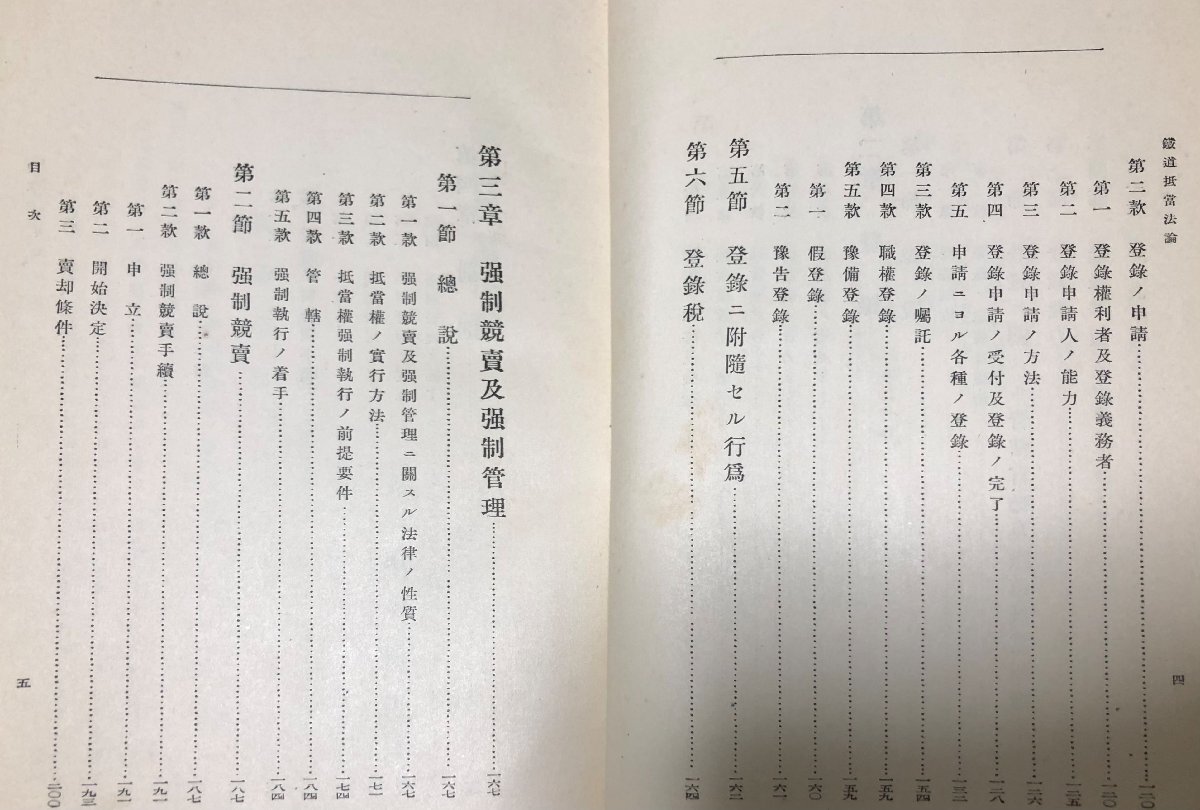 鐵道抵當法論
第二款 登錄ノ申請……一二〇
第一 登錄權利者及登錄義務者……一二〇
第二 登錄申請人ノ能力……一二五
第三 登錄申請ノ方法……一二六
第四 登錄申請ノ受付及登錄ノ完了……一二八
第五 申請ニヨル各種ノ登錄……一三二
第三款 登錄ノ囑託……一五四
第四款 職權登錄……一五九
第五款 豫備登錄……一五九
第一 假登錄……一六〇
第二 豫告登錄……一六一
第五節 登錄ニ附隨セル行爲……一六二
第六節 登錄稅……一六四
四
第三章 强制競賣及强制管理……一六七
第一節 總說……一六七
第一款 强制競賣及强制管理ニ關スル法律ノ性質……一六七
第二款 抵當權ノ實行方法……一七一
第三款 抵當權强制執行ノ前提要件……一七四
第四款 管轄……一八四
第五款 强制執行ノ着手……一八四
第二節 强制競賣……一八七
第一款 總說……一八七
第二款 强制競賣手續……一九一
第一 申立……一九一
第二 開始決定……一九三
第三 賣却條件……二〇〇
目次
五